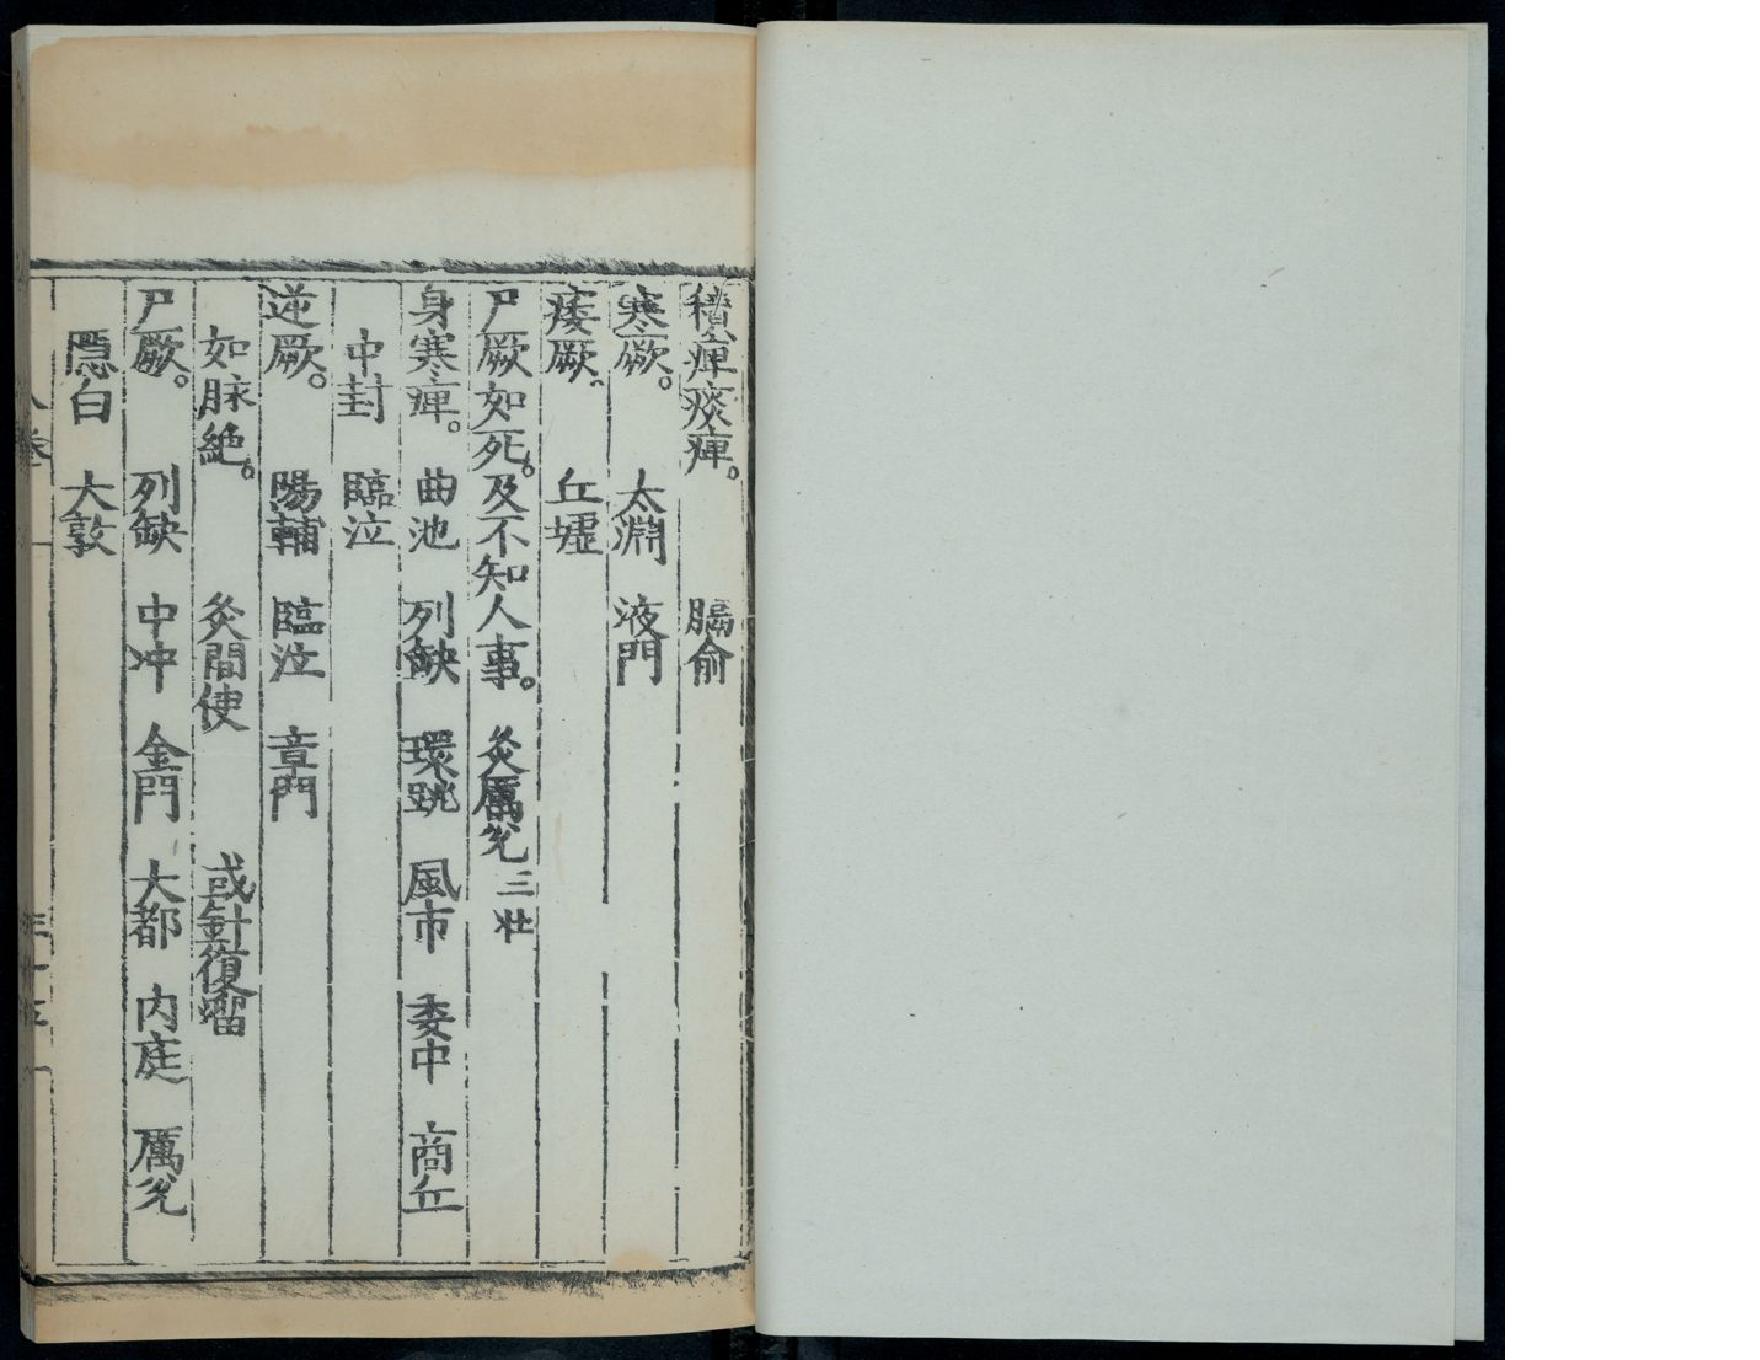 積痺痰痺。　膈俞
寒厥。　太淵　液門
痿厥。　丘墟
尸厥如死。及不知人事。　灸厲兊三壯
身寒痺。　曲池　列缺　環跳　風市　委中　商丘
中封　臨泣
逆厥。　陽輔　臨泣　章門
如脉絶。　灸間使　或針復㽞
尸厥。　列缺　中冲　金門　大都　内庭　厲兊
隱白　大敦